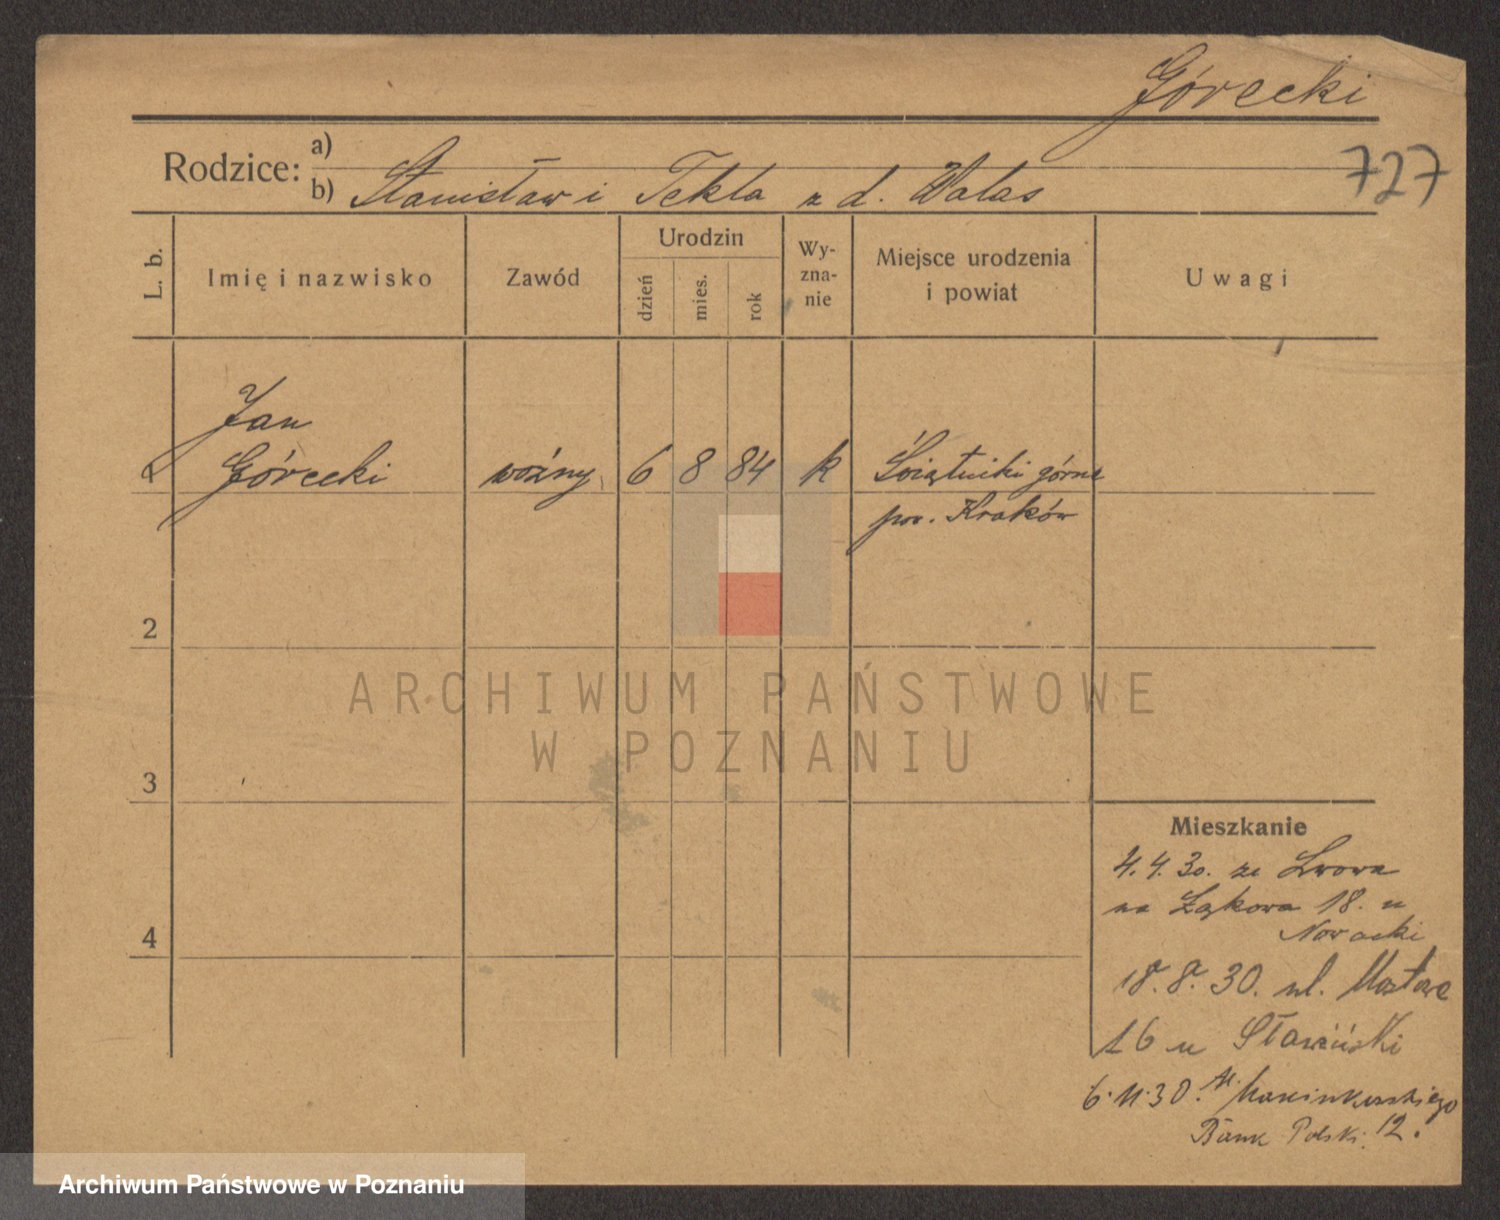 Górecki
727
Rodzice: a)
b) Stanisław i Tekla z d. Walas
L. b.
Imię i nazwisko
Zawód
Urodzin
dzień
mies.
rok
Wy-
zna-
nie
Miejsce urodzenia
i powiat
Uwagi
Jan
1 Górecki woźny 6 8 84 k Świątniki górne
pow. Kraków
2
3
4
Mieszkanie
4.4.30. ze Lwowa
na Łąkowa 18. u
Nowacki
18.8.30. ul. Mostowa
16 u
6.11.30. Al. Marcinkowskiego
Bank Polski 12.
ARCHIWUM PAŃSTWOWE
W POZNANIU
Archiwum Państwowe w Poznaniu